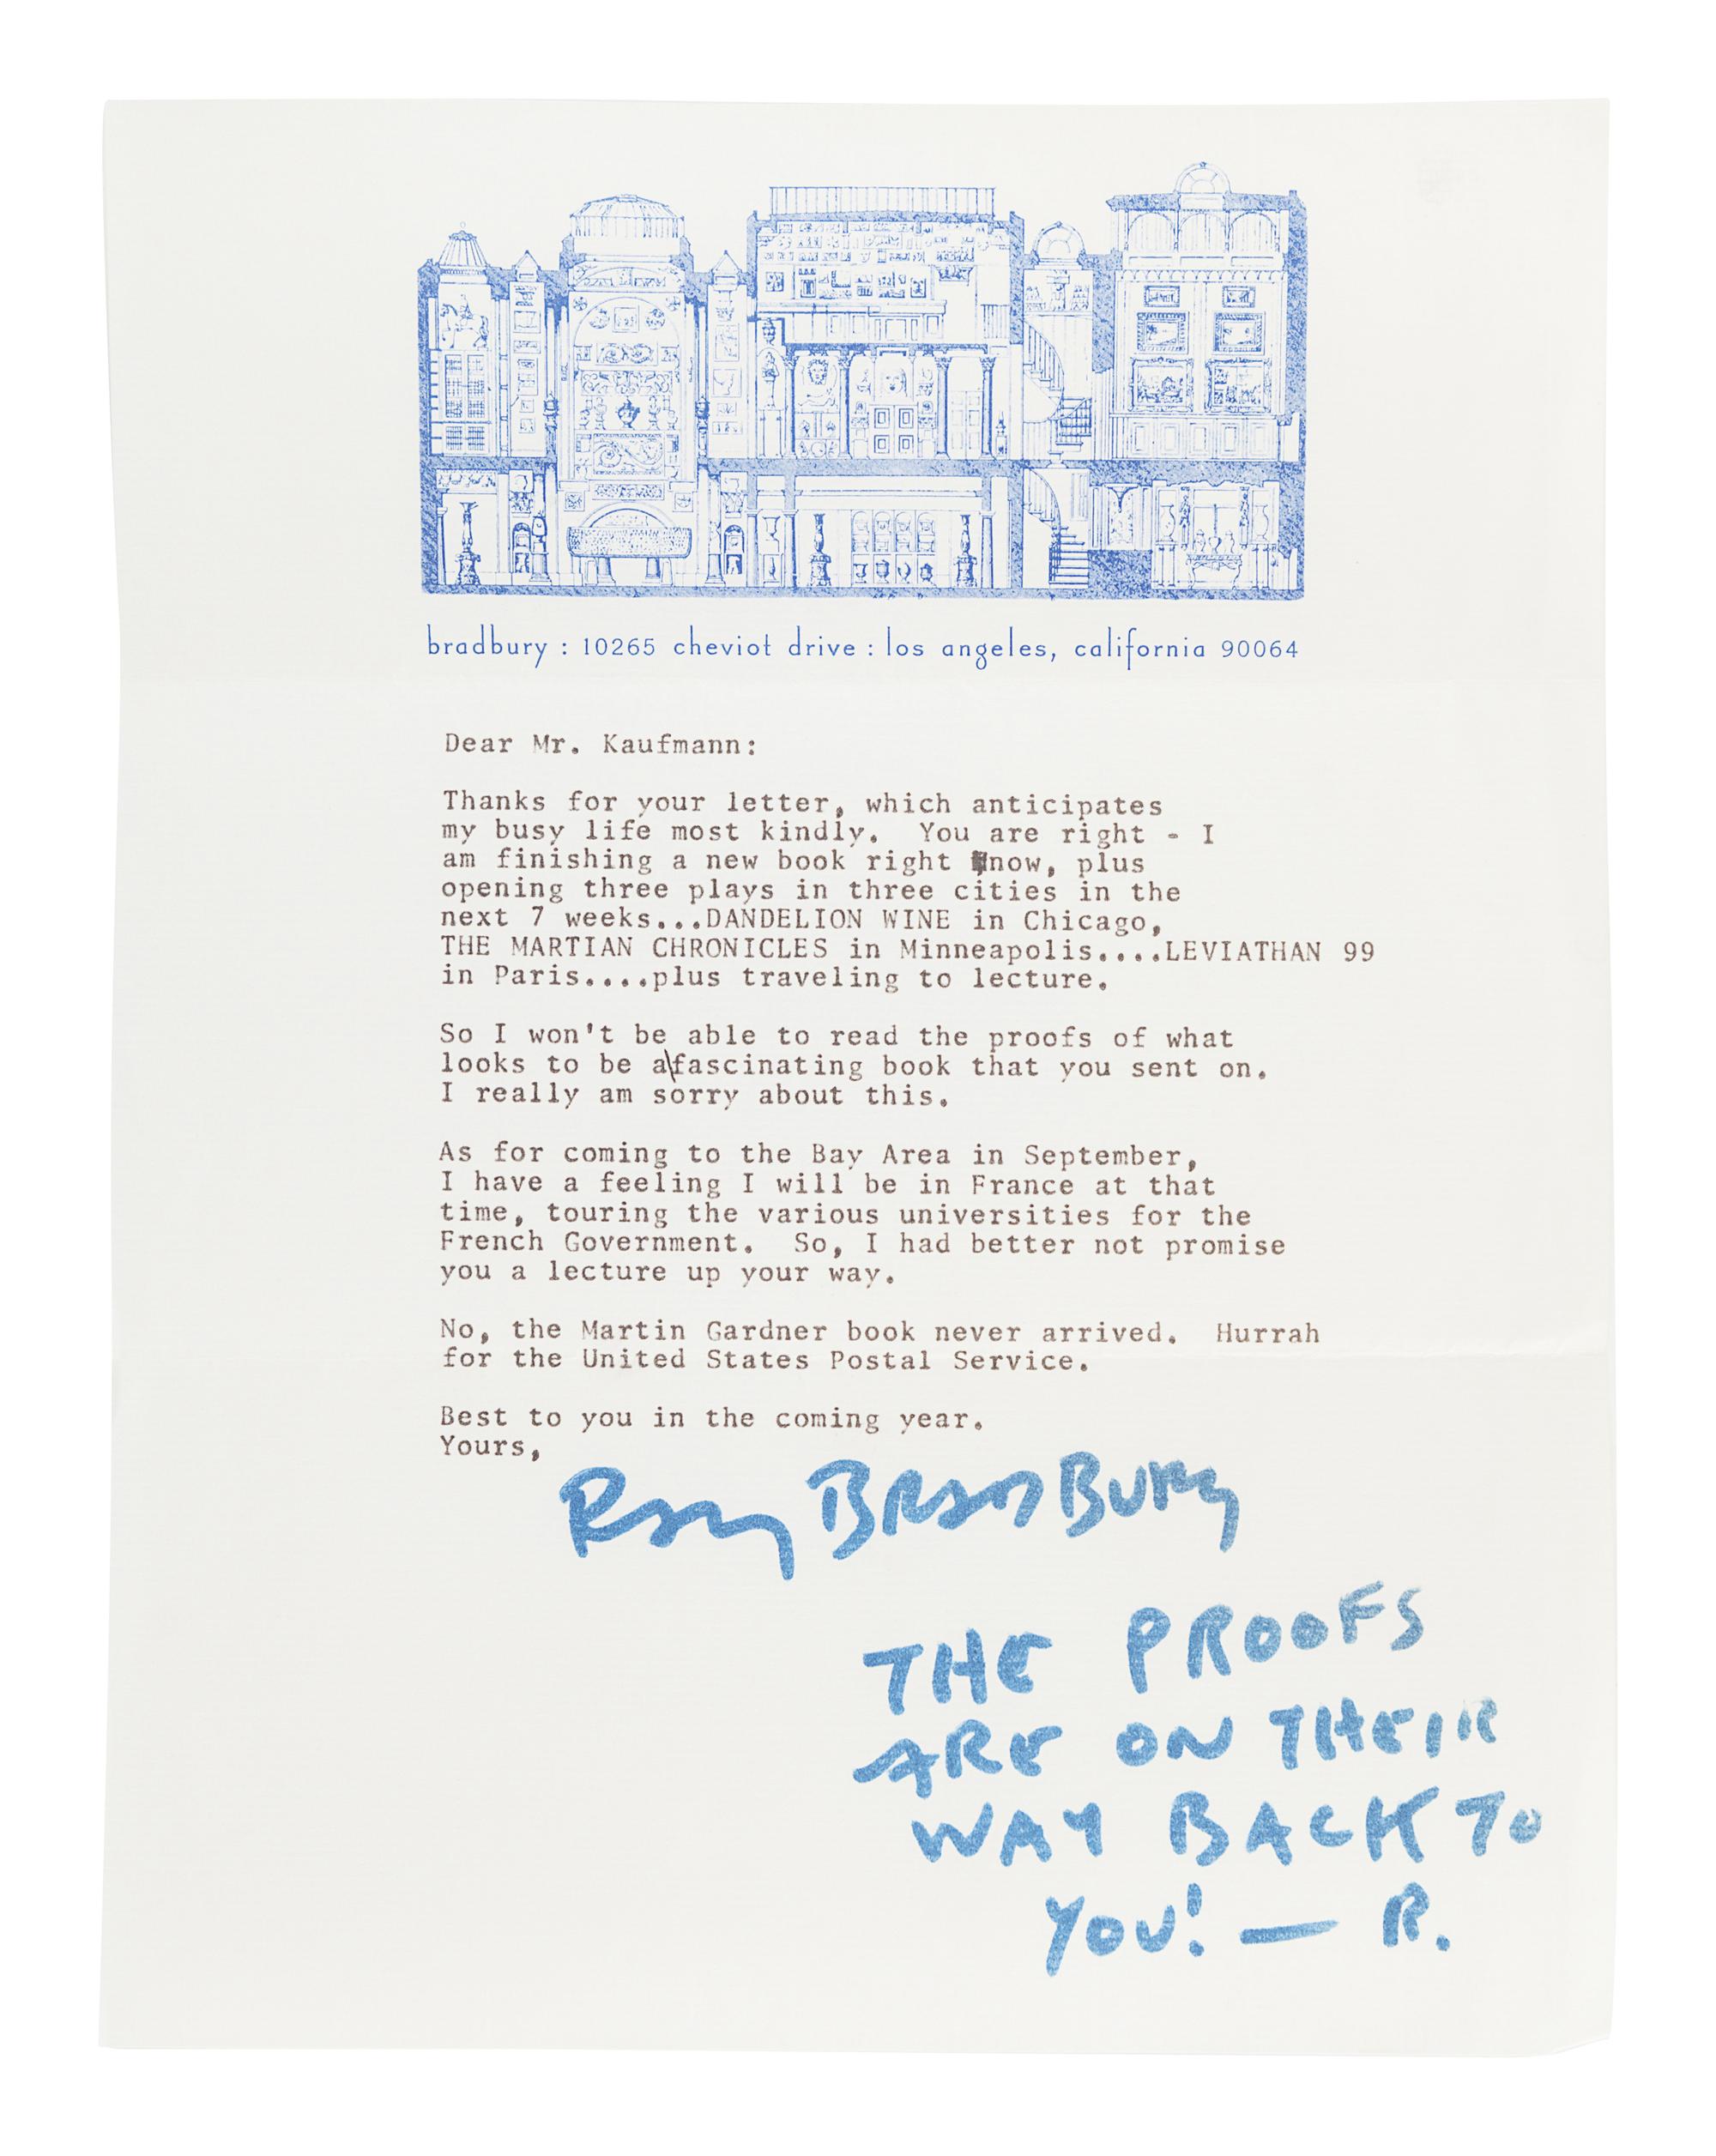 bradbury : 10265 cheviot drive : los angeles, california 90064
Dear Mr. Kaufmann:
Thanks for your letter, which anticipates
my busy life most kindly.  You are right - I
am finishing a new book right now, plus
opening three plays in three cities in the
next 7 weeks...DANDELION WINE in Chicago,
THE MARTIAN CHRONICLES in Minneapolis....LEVIATHAN 99
in Paris....plus traveling to lecture.
So I won't be able to read the proofs of what
looks to be a\fascinating book that you sent on.
I really am sorry about this.
As for coming to the Bay Area in September,
I have a feeling I will be in France at that
time, touring the various universities for the
French Government.  So, I had better not promise
you a lecture up your way.
No, the Martin Gardner book never arrived.  Hurrah
for the United States Postal Service.
Best to you in the coming year.
Yours,
Ray BRADBURY
THE PROOFS
ARE ON THEIR
WAY BACK TO
YOU! — R.